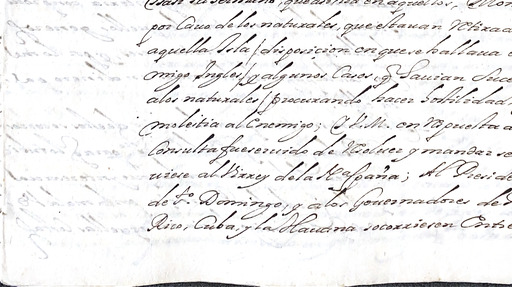 por Cavo de los naturales, que estavan Retirad
aquella Isla / disposicion en que se hallava e
migo Ingles / y algunos Casos, q̃ havian suce
a los naturales / procurando hacer hostilidad
molestia al Enemigo; S.M. en Respuesta a
Consulta fue servido de Resolver y mandar se
viese al Virrey de la Na España; Al Presid
de Sto. Domingo, y a los Governadores de
Rico, Cuba, y la Havana socorriesen Entre